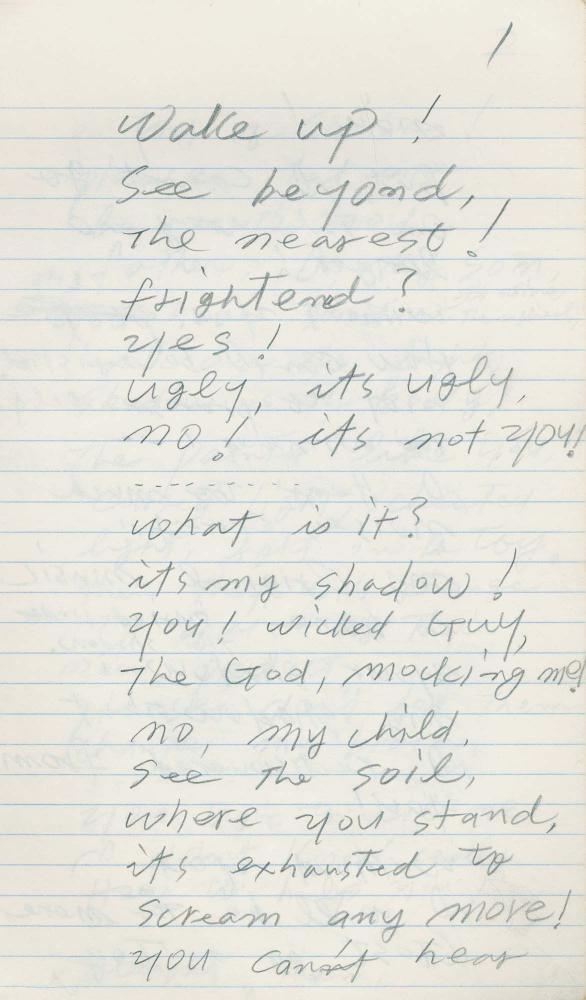 1
Wake up!
See beyond,
The nearest!
frightend?
yes!
ugly, its ugly,
no! its not you!
- - - - - - - - - -
what is it?
its my shadow!
you! wicked Guy,
The God, mocking me!
no, my child,
See The soil,
where you stand,
its exhausted to
scream any more!
you cann't hear